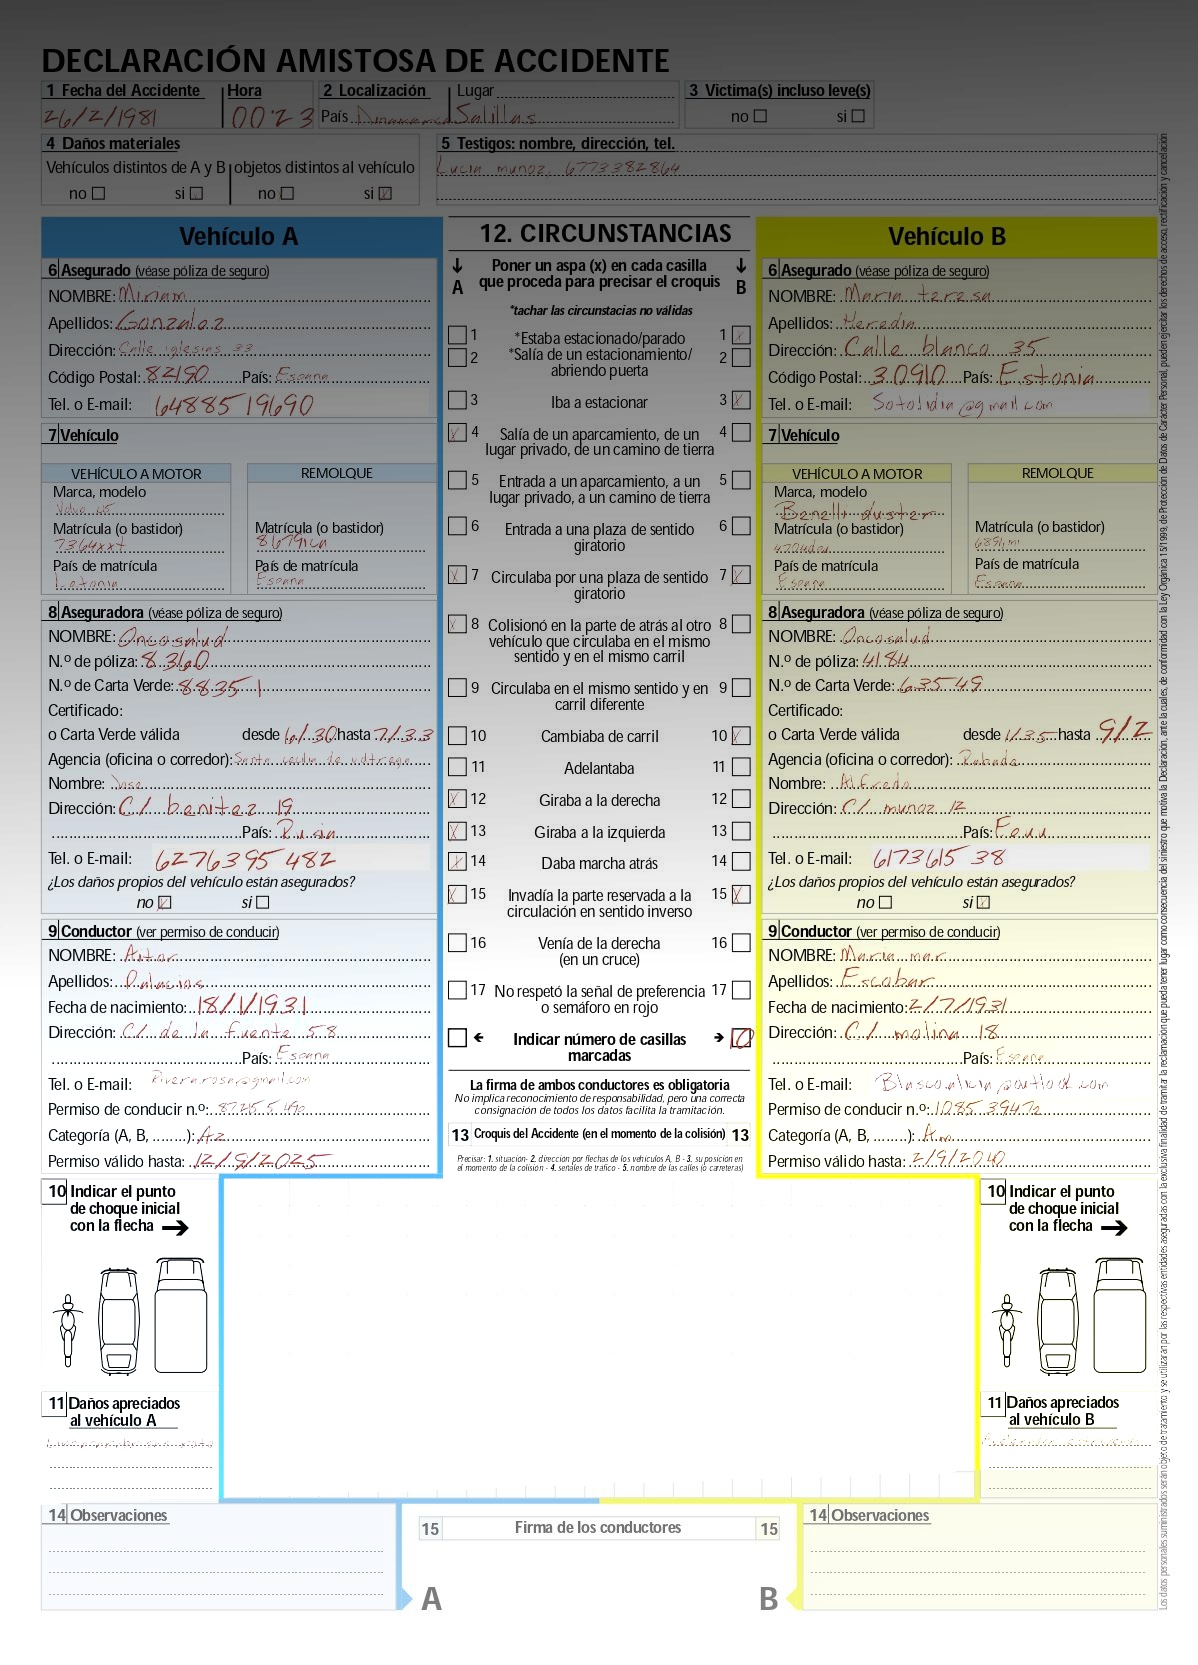 DECLARACIÓN AMISTOSA DE ACCIDENTE
1 Fecha del Accidente Hora 2 Localización Lugar 3 Victima(s) incluso leve(s)
26/2/1981 00:23 País Dinamarca Salillas no si
4 Daños materiales 5 Testigos: nombre, dirección, tel.
Vehículos distintos de A y B objetos distintos al vehículo Lucia munoz, 6773382864
no si no si X
Vehículo A
6 Asegurado (véase póliza de seguro)
NOMBRE: Miriam
Apellidos: Gonzalez
Dirección: Calle iglesias 33
Código Postal: 82190 País: Espana
Tel. o E-mail: 6488519690
7 Vehículo
VEHÍCULO A MOTOR REMOLQUE
Marca, modelo
Matrícula (o bastidor) Matrícula (o bastidor)
7364xxt
País de matrícula País de matrícula
Letonia Espana
8 Aseguradora (véase póliza de seguro)
NOMBRE: Oncosalud
N.º de póliza: 8360
N.º de Carta Verde: 88351
Certificado:
o Carta Verde válida desde 6/30 hasta 7/33
Agencia (oficina o corredor): Santa
Nombre: Jose
Dirección: C/ benitez 19
País: Rusia
Tel. o E-mail: 6276395482
¿Los daños propios del vehículo están asegurados?
no X si
9 Conductor (ver permiso de conducir)
NOMBRE: Aitor
Apellidos: Palacios
Fecha de nacimiento: 18/1/1931
Dirección: C/ de la fuente 58
País: Espana
Tel. o E-mail: Riverarosa@gmail.com
Permiso de conducir n.º:
Categoría (A, B, ........): A2
Permiso válido hasta: 12/9/2025
12. CIRCUNSTANCIAS
A B
Poner un aspa (x) en cada casilla
que proceda para precisar el croquis
*tachar las circunstacias no válidas
1 *Estaba estacionado/parado 1 X
2 *Salía de un estacionamiento/ 2
abriendo puerta
3 Iba a estacionar 3 X
X 4 Salía de un aparcamiento, de un 4
lugar privado, de un camino de tierra
5 Entrada a un aparcamiento, a un 5
lugar privado, a un camino de tierra
6 Entrada a una plaza de sentido 6
giratorio
X 7 Circulaba por una plaza de sentido 7 X
giratorio
X 8 Colisionó en la parte de atrás al otro 8
vehículo que circulaba en el mismo
sentido y en el mismo carril
9 Circulaba en el mismo sentido y en 9
carril diferente
10 Cambiaba de carril 10 X
11 Adelantaba 11
X 12 Giraba a la derecha 12
X 13 Giraba a la izquierda 13
X 14 Daba marcha atrás 14
X 15 Invadía la parte reservada a la 15 X
circulación en sentido inverso
16 Venía de la derecha 16
(en un cruce)
17 No respetó la señal de preferencia 17
o semáforo en rojo
Indicar número de casillas 10
marcadas
La firma de ambos conductores es obligatoria
No implica reconocimiento de responsabilidad, pero una correcta
consignación de todos los datos facilita la tramitación.
13 Croquis del Accidente (en el momento de la colisión) 13
Precisar: 1. situación- 2. dirección por flechas de los vehículos A, B - 3. su posición en
el momento de la colisión - 4. señales de tráfico - 5. nombre de las calles (o carreteras)
Vehículo B
6 Asegurado (véase póliza de seguro)
NOMBRE: Maria teresa
Apellidos: Heredia
Dirección: Calle blanco 35
Código Postal: 30910 País: Estonia
Tel. o E-mail: Sotolidia@gmail.com
7 Vehículo
VEHÍCULO A MOTOR REMOLQUE
Marca, modelo
Benelli duster
Matrícula (o bastidor) Matrícula (o bastidor)
País de matrícula País de matrícula
Espana Espana
8 Aseguradora (véase póliza de seguro)
NOMBRE: Oncosalud
N.º de póliza: 4184
N.º de Carta Verde: 63549
Certificado:
o Carta Verde válida desde 1/35 hasta 9/2
Agencia (oficina o corredor): Robada
Nombre: Alfredo
Dirección: C/ munoz 12
País:
Tel. o E-mail: 617361538
¿Los daños propios del vehículo están asegurados?
no si X
9 Conductor (ver permiso de conducir)
NOMBRE: Maria mar
Apellidos: Escobar
Fecha de nacimiento: 2/7/1931
Dirección: C/ molina 18
País: Espana
Tel. o E-mail: Blascoalicia@outlook.com
Permiso de conducir n.º:
Categoría (A, B, ........): Am
Permiso válido hasta: 2/9/2040
10 Indicar el punto
de choque inicial
con la flecha
11 Daños apreciados
al vehículo A
10 Indicar el punto
de choque inicial
con la flecha
11 Daños apreciados
al vehículo B
14 Observaciones
15 Firma de los conductores 15
A B
14 Observaciones
Los datos personales suministrados serán objeto de tratamiento y se utilizaran por las respectivas entidades aseguradas con la exclusiva finalidad de tramitar la reclamación que pueda tener lugar como consecuencia del siniestro que motiva la Declaración, ante la cuales, de conformidad con la Ley Orgánica 15/1999, de Protección de Datos de Carácter Personal, pueden ejercitar los derechos de acceso, rectificación y cancelación